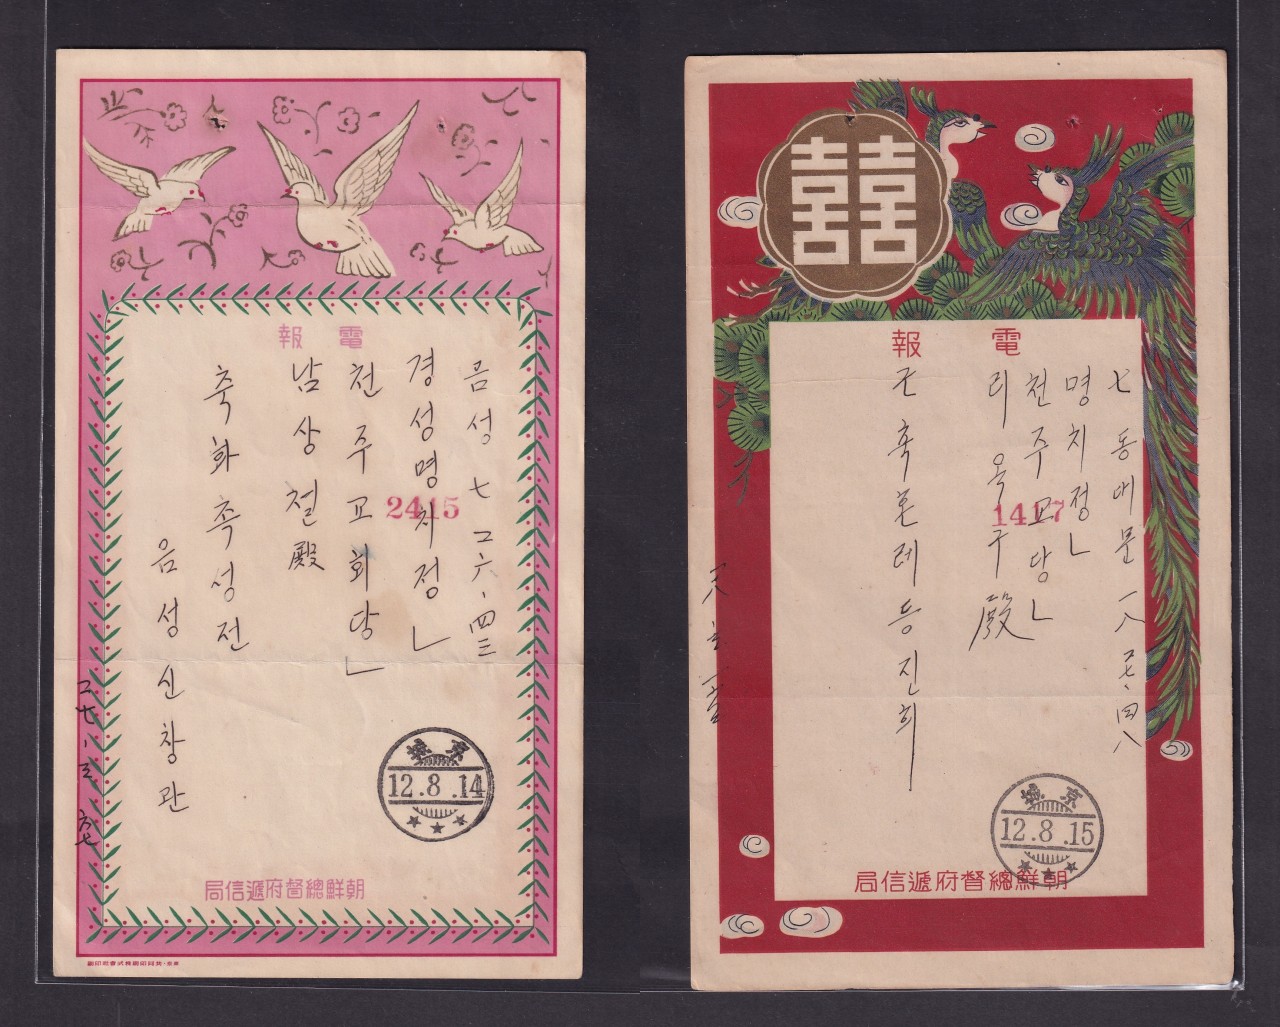 電報
음성 七 그六、四三
경성명치정」
천주교회당」
남상철殿
축화촉성전
음성신창관
2415
京城
12.8.14
朝鮮總督府遞信局
囍
電報
七 동대문 一八
명치정」
천주교당」
리옥구 殿
근축혼례 등진희
1417
京城
12.8.15
朝鮮總督府遞信局